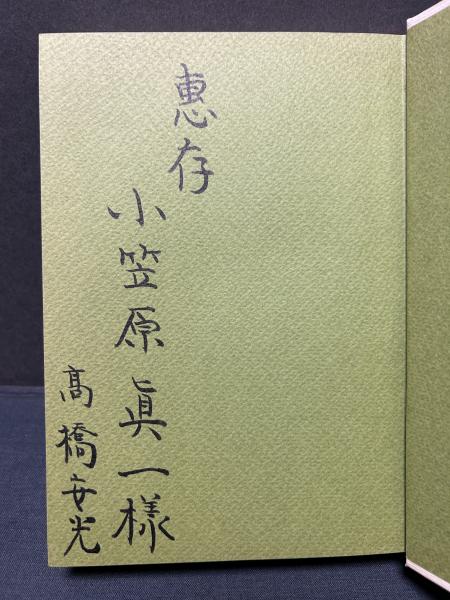 惠存
小笠原眞一様
髙橋安光